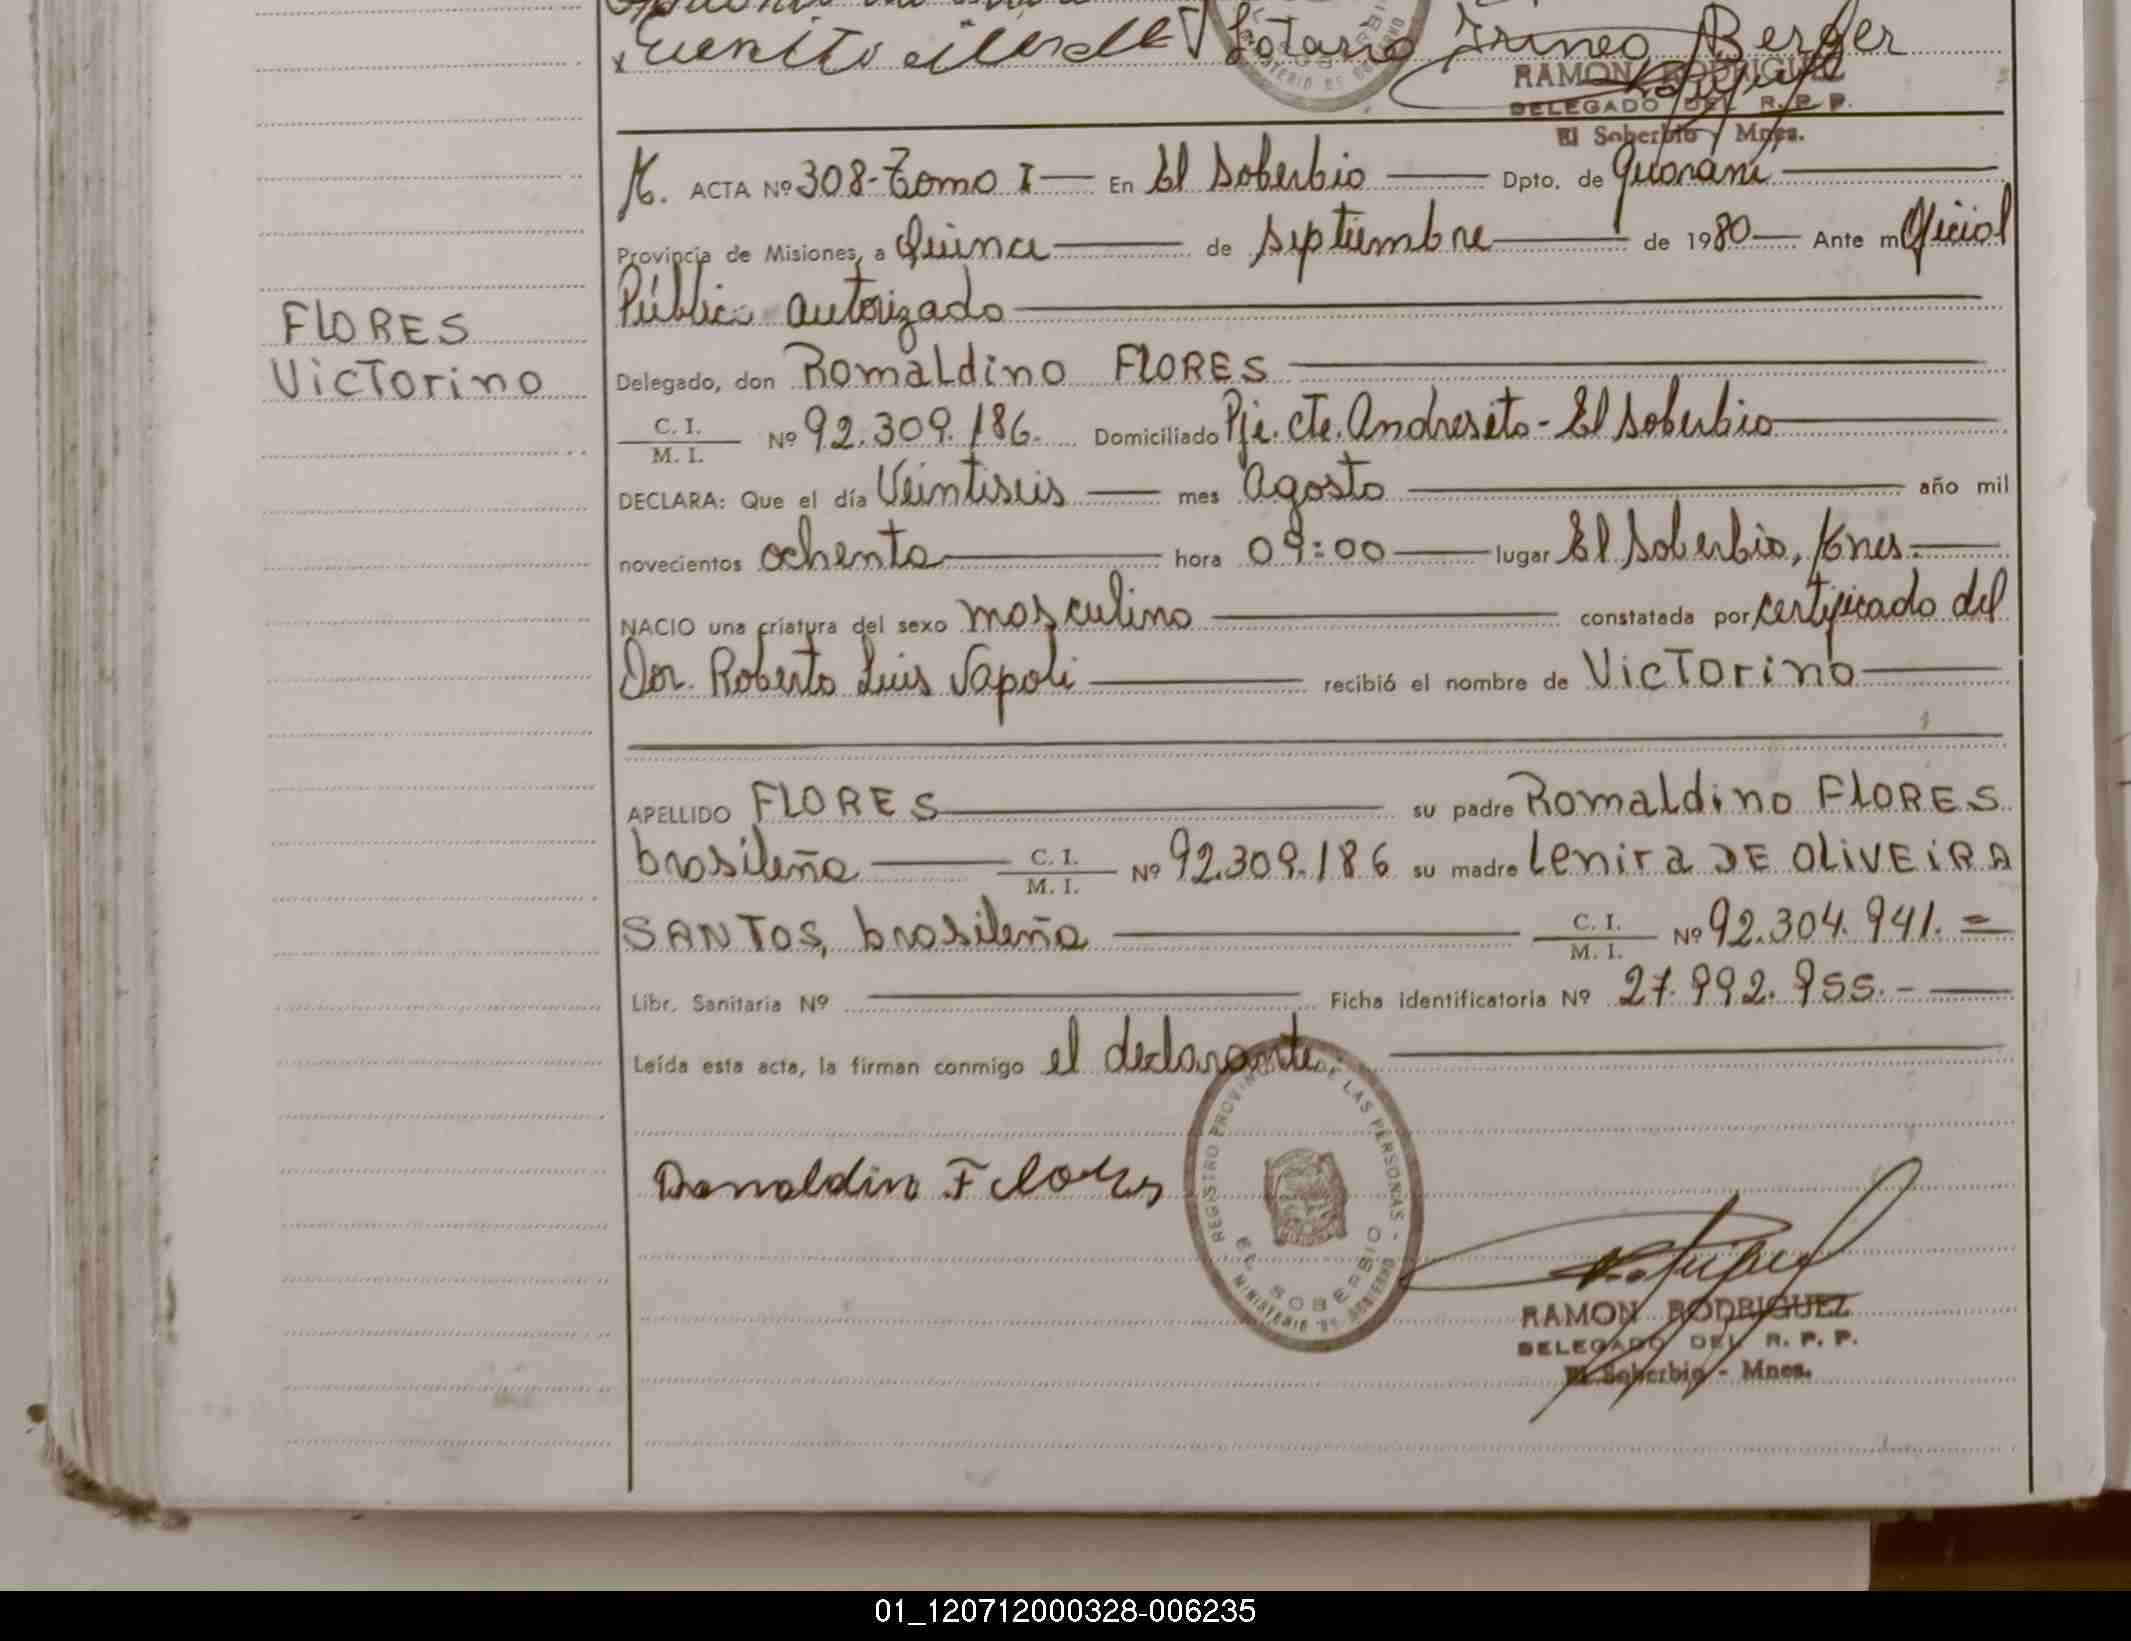 Lotario Irineo Berger
RAMON RODRIGUEZ
DELEGADO DEL R. P. P.
El Soberbio - Mnes.
M. ACTA Nº 308-Tomo I En El Soberbio Dpto. de Guaraní
Provincia de Misiones, a Quince de Septiembre de 1980 Ante mí Oficial
Público autorizado
FLORES
Victorino
Delegado, don Romaldino FLORES
C. I. / M. I. Nº 92.309.186. Domiciliado Pje. Cte. Andresito - El Soberbio
DECLARA: Que el día Veintiseis mes Agosto año mil
novecientos ochenta hora 09:00 lugar El Soberbio, Mnes.
NACIO una criatura del sexo masculino constatada por certificado del
Dor. Roberto Luis Napoli recibió el nombre de Victorino
APELLIDO FLORES su padre Romaldino FLORES
brasileña C. I. / M. I. Nº 92.309.186 su madre Lenira DE OLIVEIRA
SANTOS, brasileña C. I. / M. I. Nº 92.304.941. =
Libr. Sanitaria Nº Ficha identificatoria Nº 27.992.955.-
Leída esta acta, la firman conmigo el declarante.
REGISTRO PROVINCIAL DE LAS PERSONAS - EL SOBERBIO
MINISTERIO DE GOBIERNO
MISIONES
Romaldino Flores
RAMON RODRIGUEZ
DELEGADO DEL R. P. P.
El Soberbio - Mnes.
01_120712000328-006235